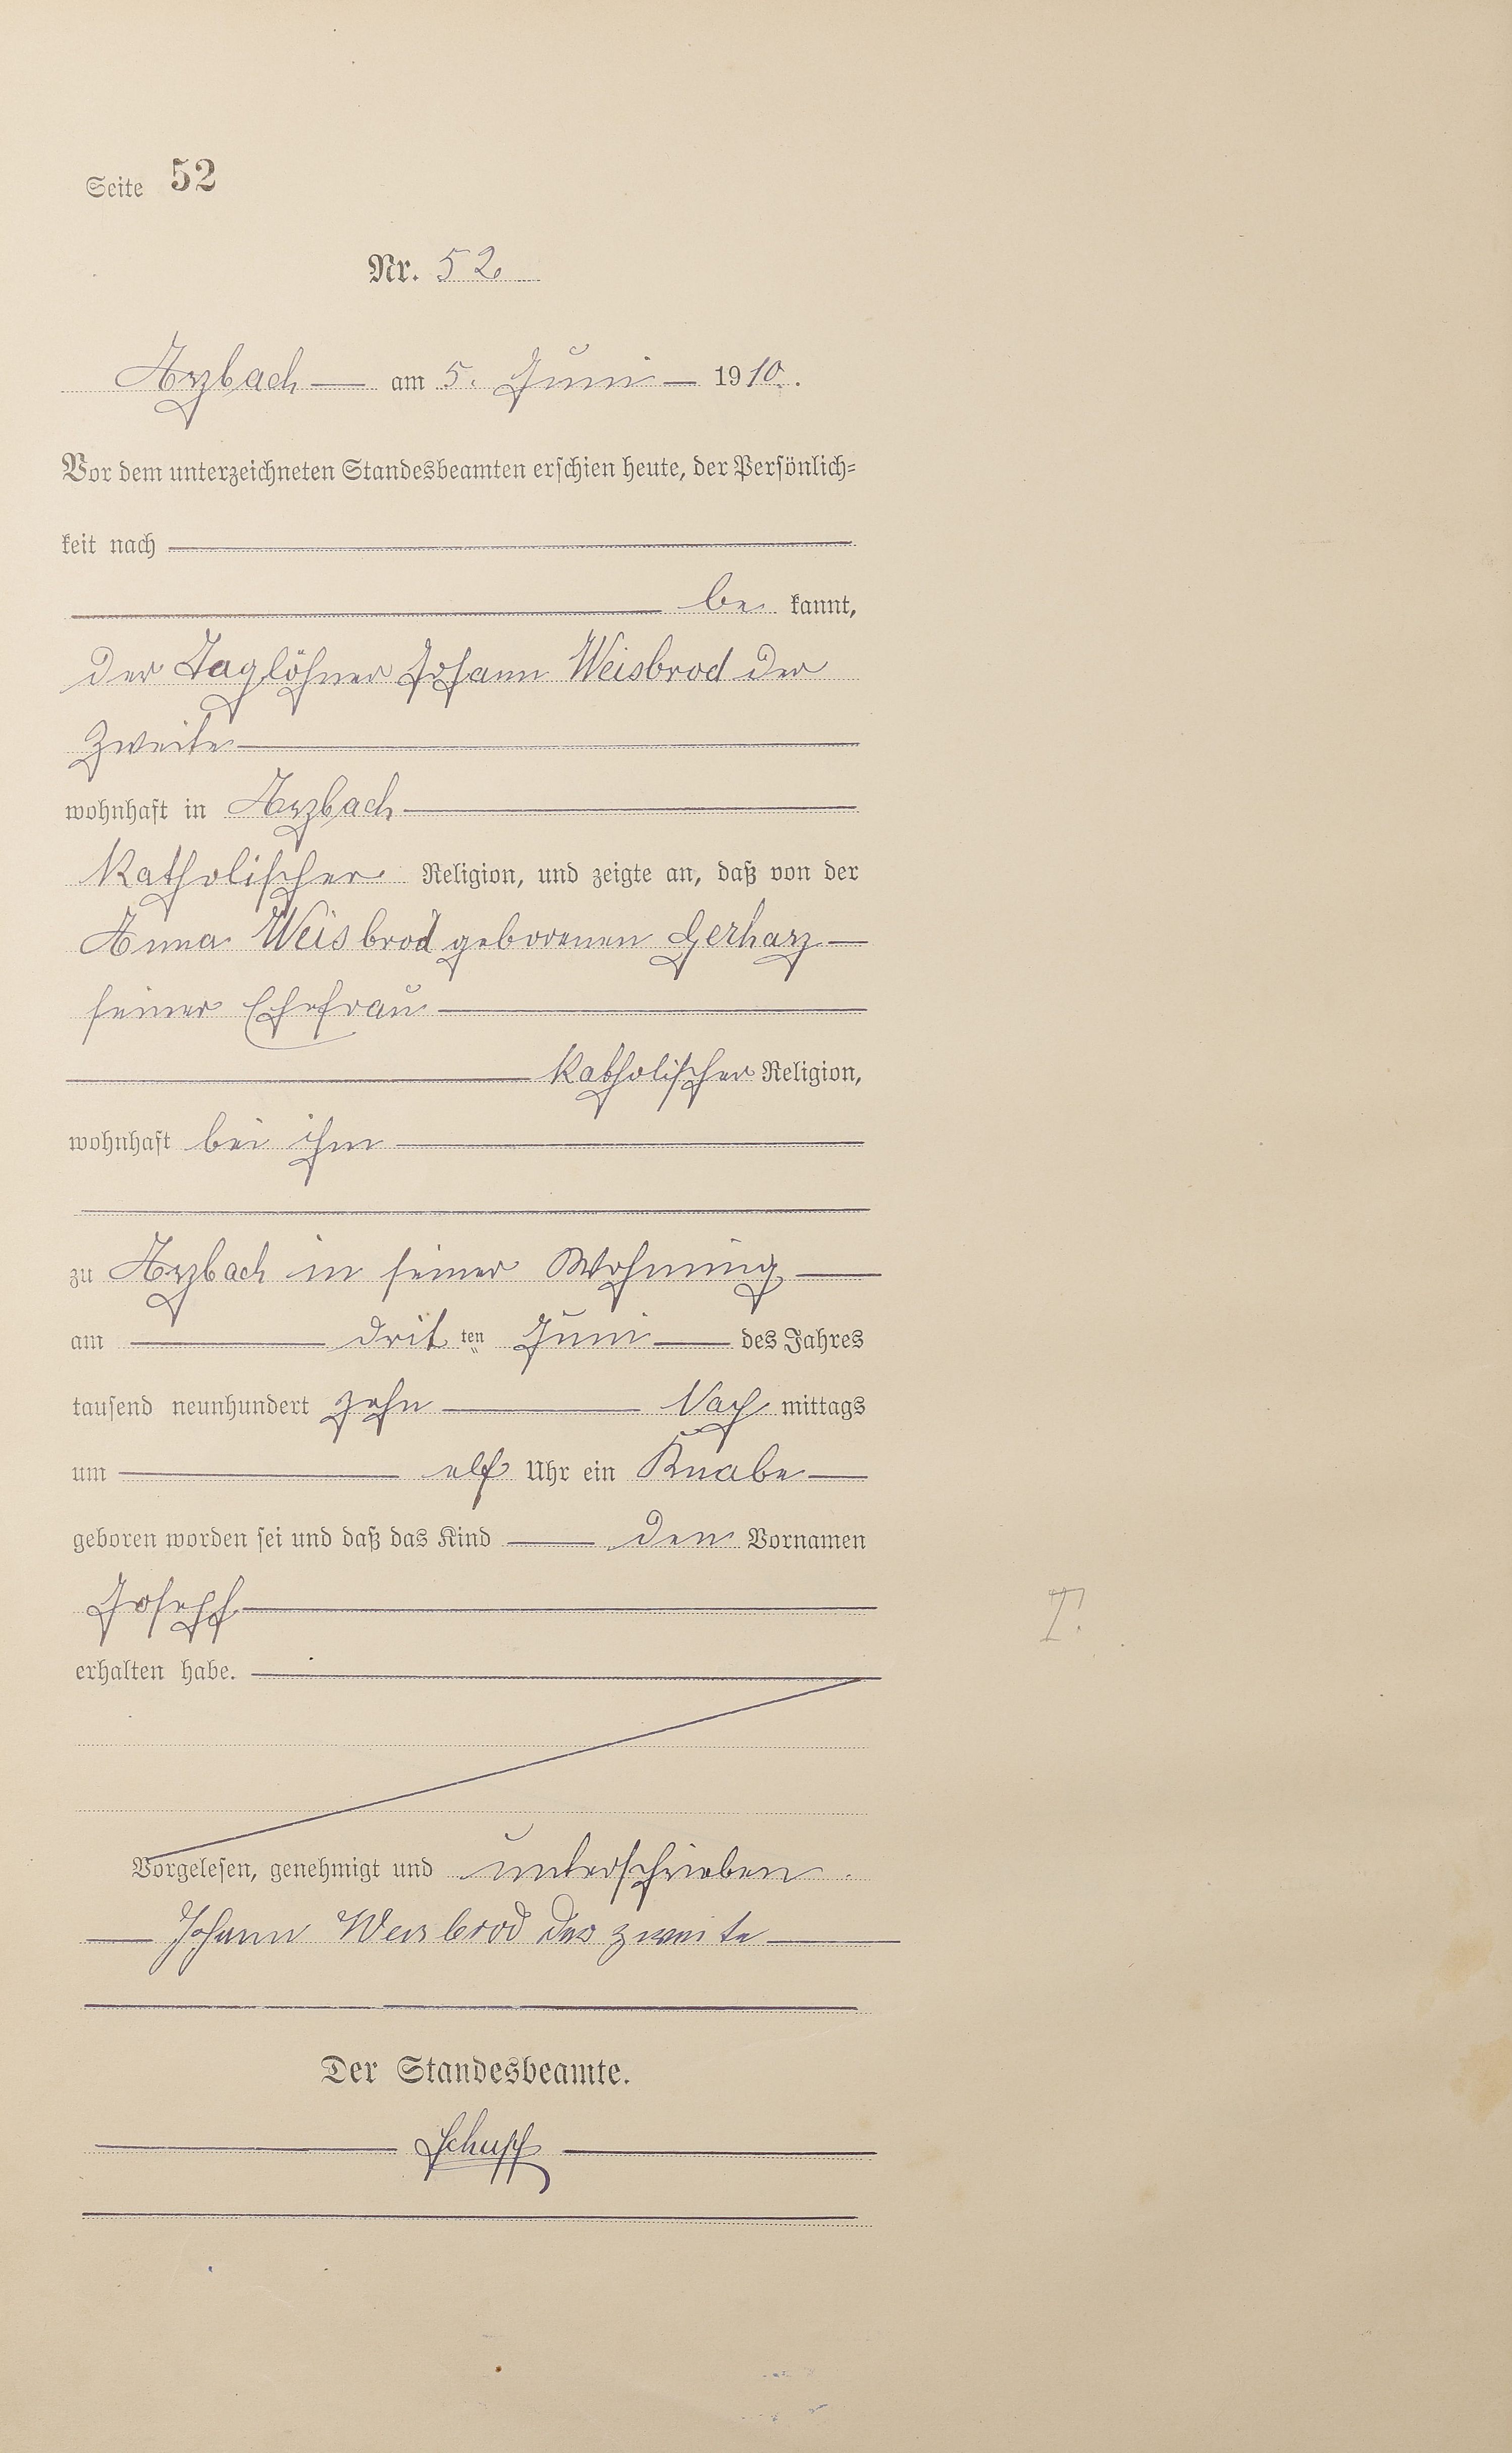 Seite 52
Nr. 52
Arzbach am 5. Juni 1910.
Vor dem unterzeichneten Standesbeamten erschien heute, der Persönlich-
keit nach
be kannt,
der Taglöhner Johann Weisbrod der
Zweite
wohnhaft in Arzbach
Katholischer Religion, und zeigte an, daß von der
Anna Weisbrod geborenen Gerharz
seiner Ehefrau
Katholischer Religion,
wohnhaft bei ihm
zu Arzbach in seiner Wohnung
am drit ten Juni des Jahres
tausend neunhundert zehn Nach mittags
um elf Uhr ein Knabe
geboren worden sei und daß das Kind den Vornamen
Joseph
T.
erhalten habe.
Vorgelesen, genehmigt und unterschrieben.
Johann Weisbrod der zweite
Der Standesbeamte.
Schupp